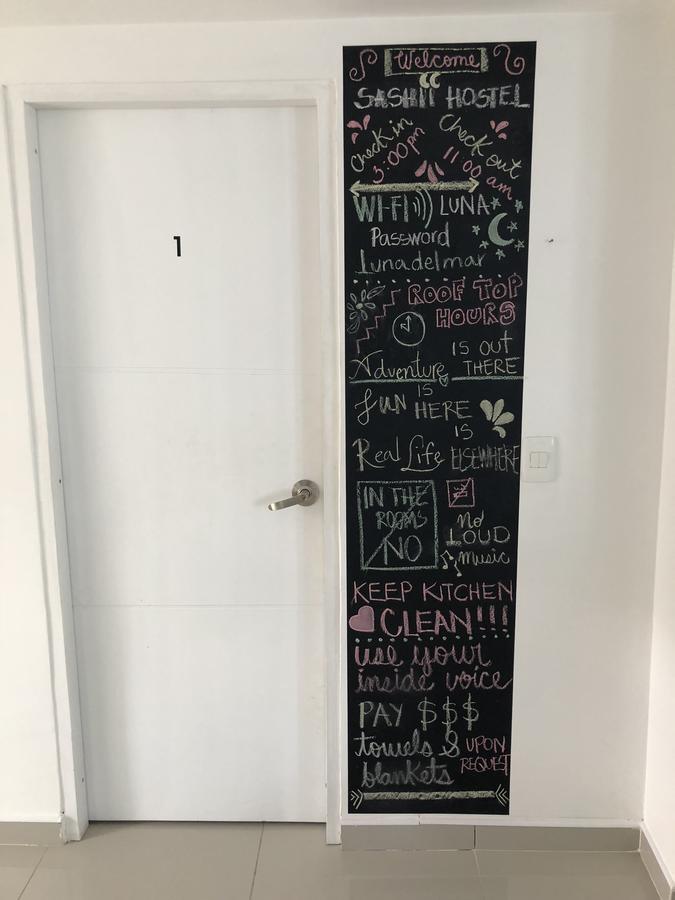 1
Welcome
SASHII HOSTEL
Check in
3:00pm
Check out
11:00 am
WI-FI LUNA
Password
Lunadelmar
ROOF TOP
HOURS
Adventure IS OUT THERE
fun IS HERE
Real Life IS ELSEWHERE
IN THE
ROOMS
NO
No
LOUD
Music
KEEP KITCHEN
CLEAN!!!
use your
inside voice
PAY $$$
towels &
blankets
UPON
REQUEST